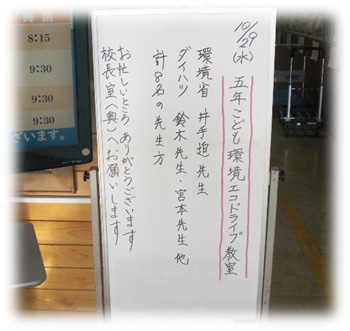 10/29(水)
五年こども環境エコドライブ教室
環境省 井手迫先生
ダイハツ 鈴木先生・宮本先生 他
計8名の先生方
お忙しいところ ありがとうございます
校長室(奥)へお願いします
8:15
9:30
9:30
ざいます。